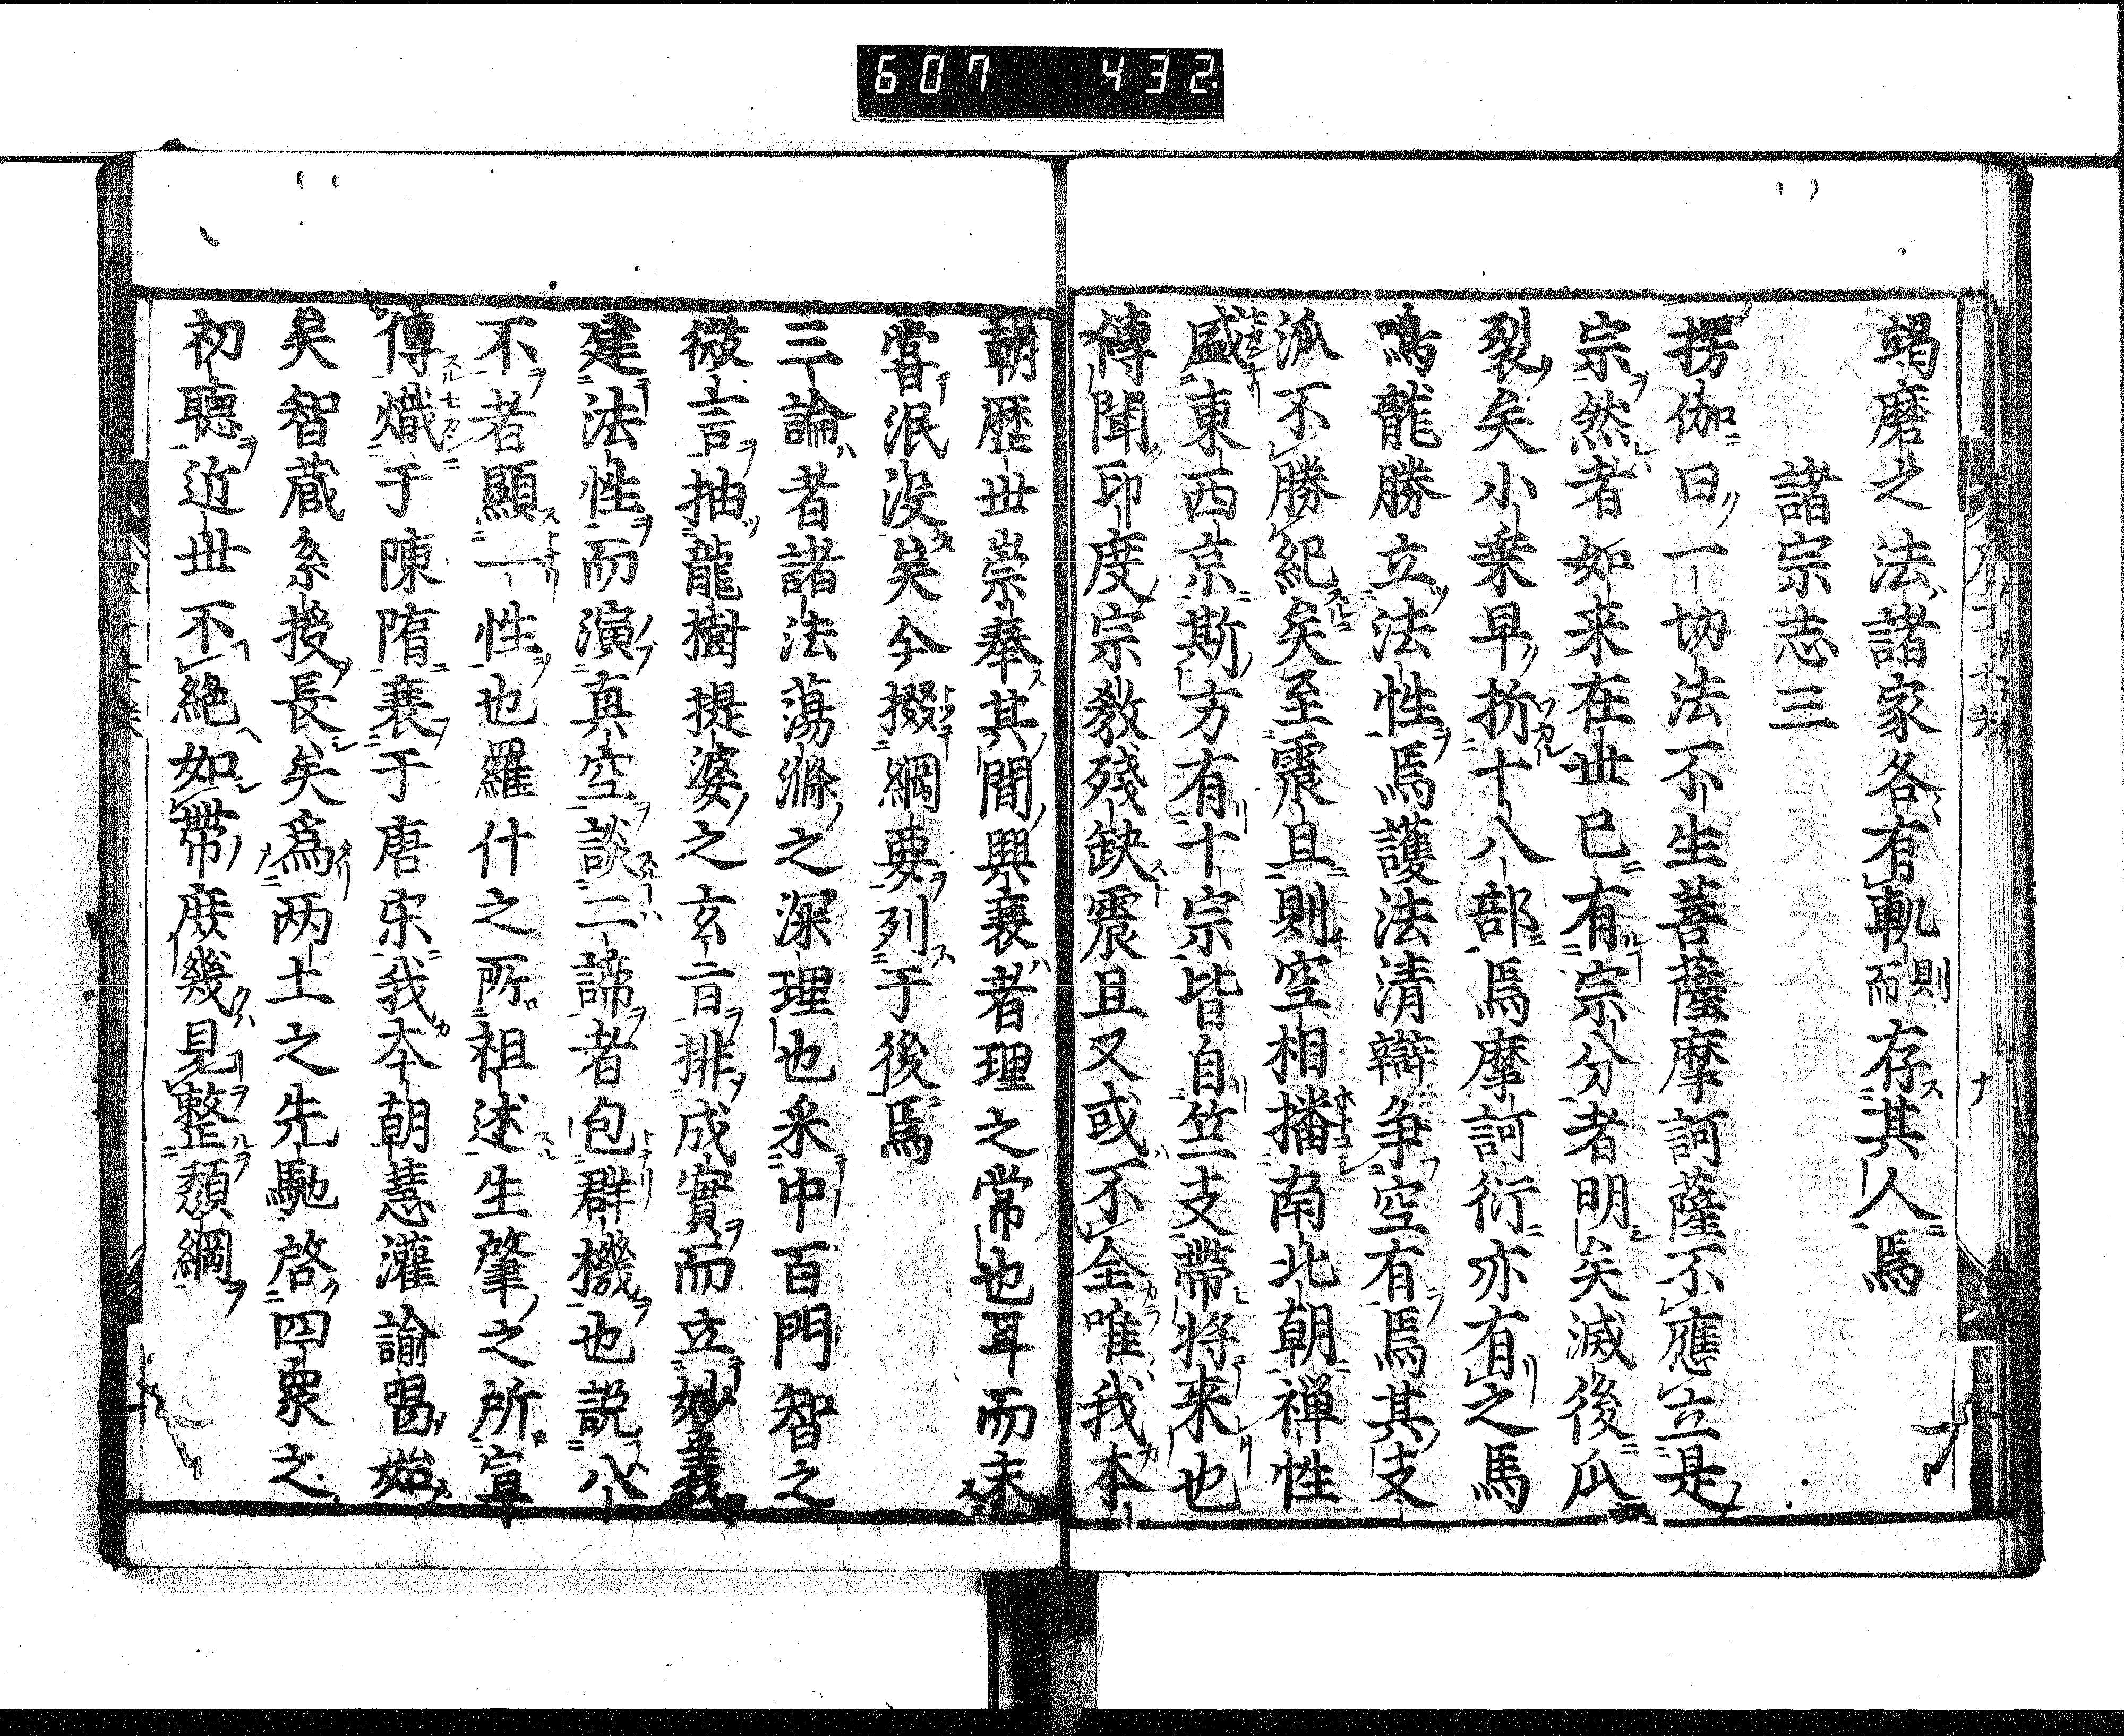 607 432
竭磨之法諸家各有軌則而存其人焉
諸宗志三
楞伽曰一切法不生菩薩摩訶薩不應立是
宗然者如来在世已有宗分者明矣滅後瓜
裂矣小乗早折十八部焉摩訶衍亦有之馬
鳴龍勝立法性焉護法清辯争空有焉其支
派不勝紀矣至震旦則空相播南北朝禅性
盛東西京斯方有十宗皆自竺支帶将来也
傳聞印度宗教殘缺震旦又或不全唯我本
朝歴世崇奉其間興衰者理之常也耳而未
嘗泯没矣今掇綱要列于後焉
三論者諸法蕩滌之深理也采中百門智之
微言抽龍樹提婆之玄旨排成實而立妙義
建法性而演真空談二諦者包群機也説八
不者顯一性也羅什之所祖述生肇之所宣
傳熾于陳隋衰于唐宋我本朝慧灌諭曷始
矣智蔵系授長矣為两土之先馳啓四衆之
初聽近世不絶如帶庶幾見整頽綱